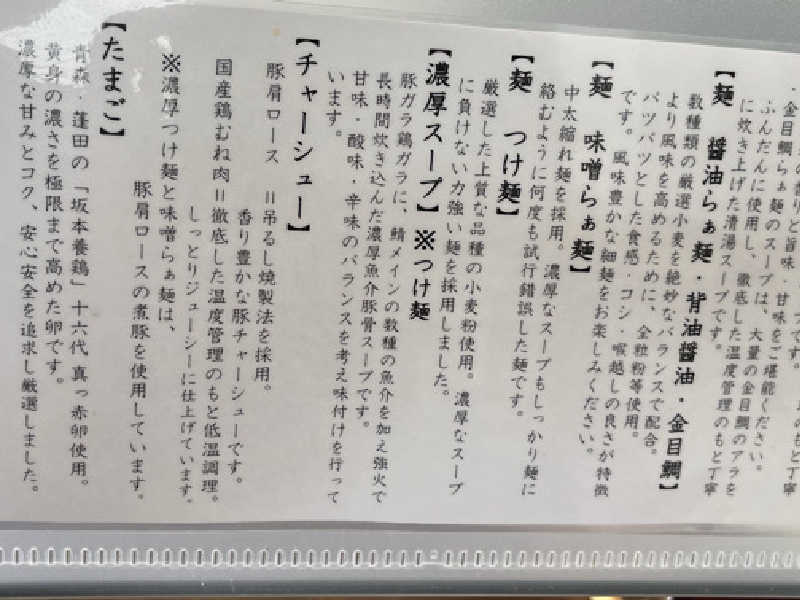 ・金目鯛らぁ麺のスープは、大量の金目鯛のアラを
ふんだんに使用し、徹底した温度管理のもと丁寧
に炊き上げた清湯スープです。
【麺 醤油らぁ麺・背油醤油・金目鯛】
数種類の厳選小麦を絶妙なバランスで配合。
より風味を高めるために、全粒粉等使用。
パツパツとした食感・コシ・喉越しの良さが特徴
です。風味豊かな細麺をお楽しみください。
【麺 味噌らぁ麺】
中太縮れ麺を採用。濃厚なスープもしっかり麺に
絡むように何度も試行錯誤した麺です。
【麺 つけ麺】
厳選した上質な品種の小麦粉使用。濃厚なスープ
に負けない力強い麺を採用しました。
【濃厚スープ】※つけ麺
豚ガラ鶏ガラに、鯖メインの数種の魚介を加え強火で
長時間炊き込んだ濃厚魚介豚骨スープです。
甘味・酸味・辛味のバランスを考え味付けを行って
います。
【チャーシュー】
豚肩ロース ＝吊るし燒製法を採用。
香り豊かな豚チャーシューです。
国産鶏むね肉＝徹底した温度管理のもと低温調理。
しっとりジューシーに仕上げています。
※濃厚つけ麺と味噌らぁ麺は、
豚肩ロースの煮豚を使用しています。
【たまご】
青森・蓬田の「坂本養鶏」十六代 真っ赤卵使用。
黄身の濃さを極限まで高めた卵です。
濃厚な甘みとコク、安心安全を追求し厳選しました。